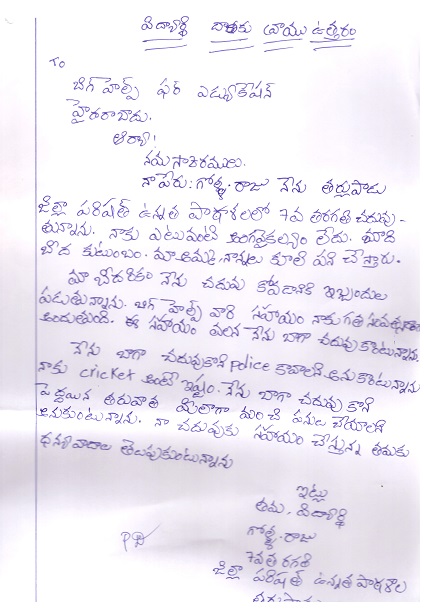 విద్యార్థి దాతకు వ్రాయు ఉత్తరం
To
బిగ్ హెల్ప్ ఫర్ ఎడ్యుకేషన్
హైదరాబాదు.
ఆర్యా!
నమస్కారములు.
నా పేరు: గోళ్ళ. రాజు నేను తర్లుపాడు
జిల్లా పరిషత్ ఉన్నత పాఠశాలలో 7వ తరగతి చదువు-
తున్నాను. నాకు ఎటువంటి అంగవైకల్యం లేదు. మాది
బీద కుటుంబం. మా అమ్మ, నాన్నలు కూలి పని చేస్తారు.
మా బీదరికం నేను చదువు కోవడానికి ఇబ్బందుల
పడుతున్నాను. బిగ్ హెల్ప్ వారి సహాయం నాకు గత సంవత్సరం
అందుతుంది. ఈ సహాయం వలన నేను బాగా చదువుకొంటున్నాను.
నేను బాగా చదువుకొని police కావాలని అనుకొంటున్నాను
నాకు cricket అంటే ఇష్టం. నేను బాగా చదువు కొని
పెద్దయిన తరువాత మీలాగా మంచి పనులు చేయాలని
అనుకుంటున్నాను. నా చదువుకు సహాయం చేస్తున్న తమకు
ధన్యవాదాలు తెలుపుకుంటున్నాను
ఇట్లు
తమ విద్యార్థి
గోళ్ళ. రాజు
7వ తరగతి
జిల్లా పరిషత్ ఉన్నత పాఠశాల